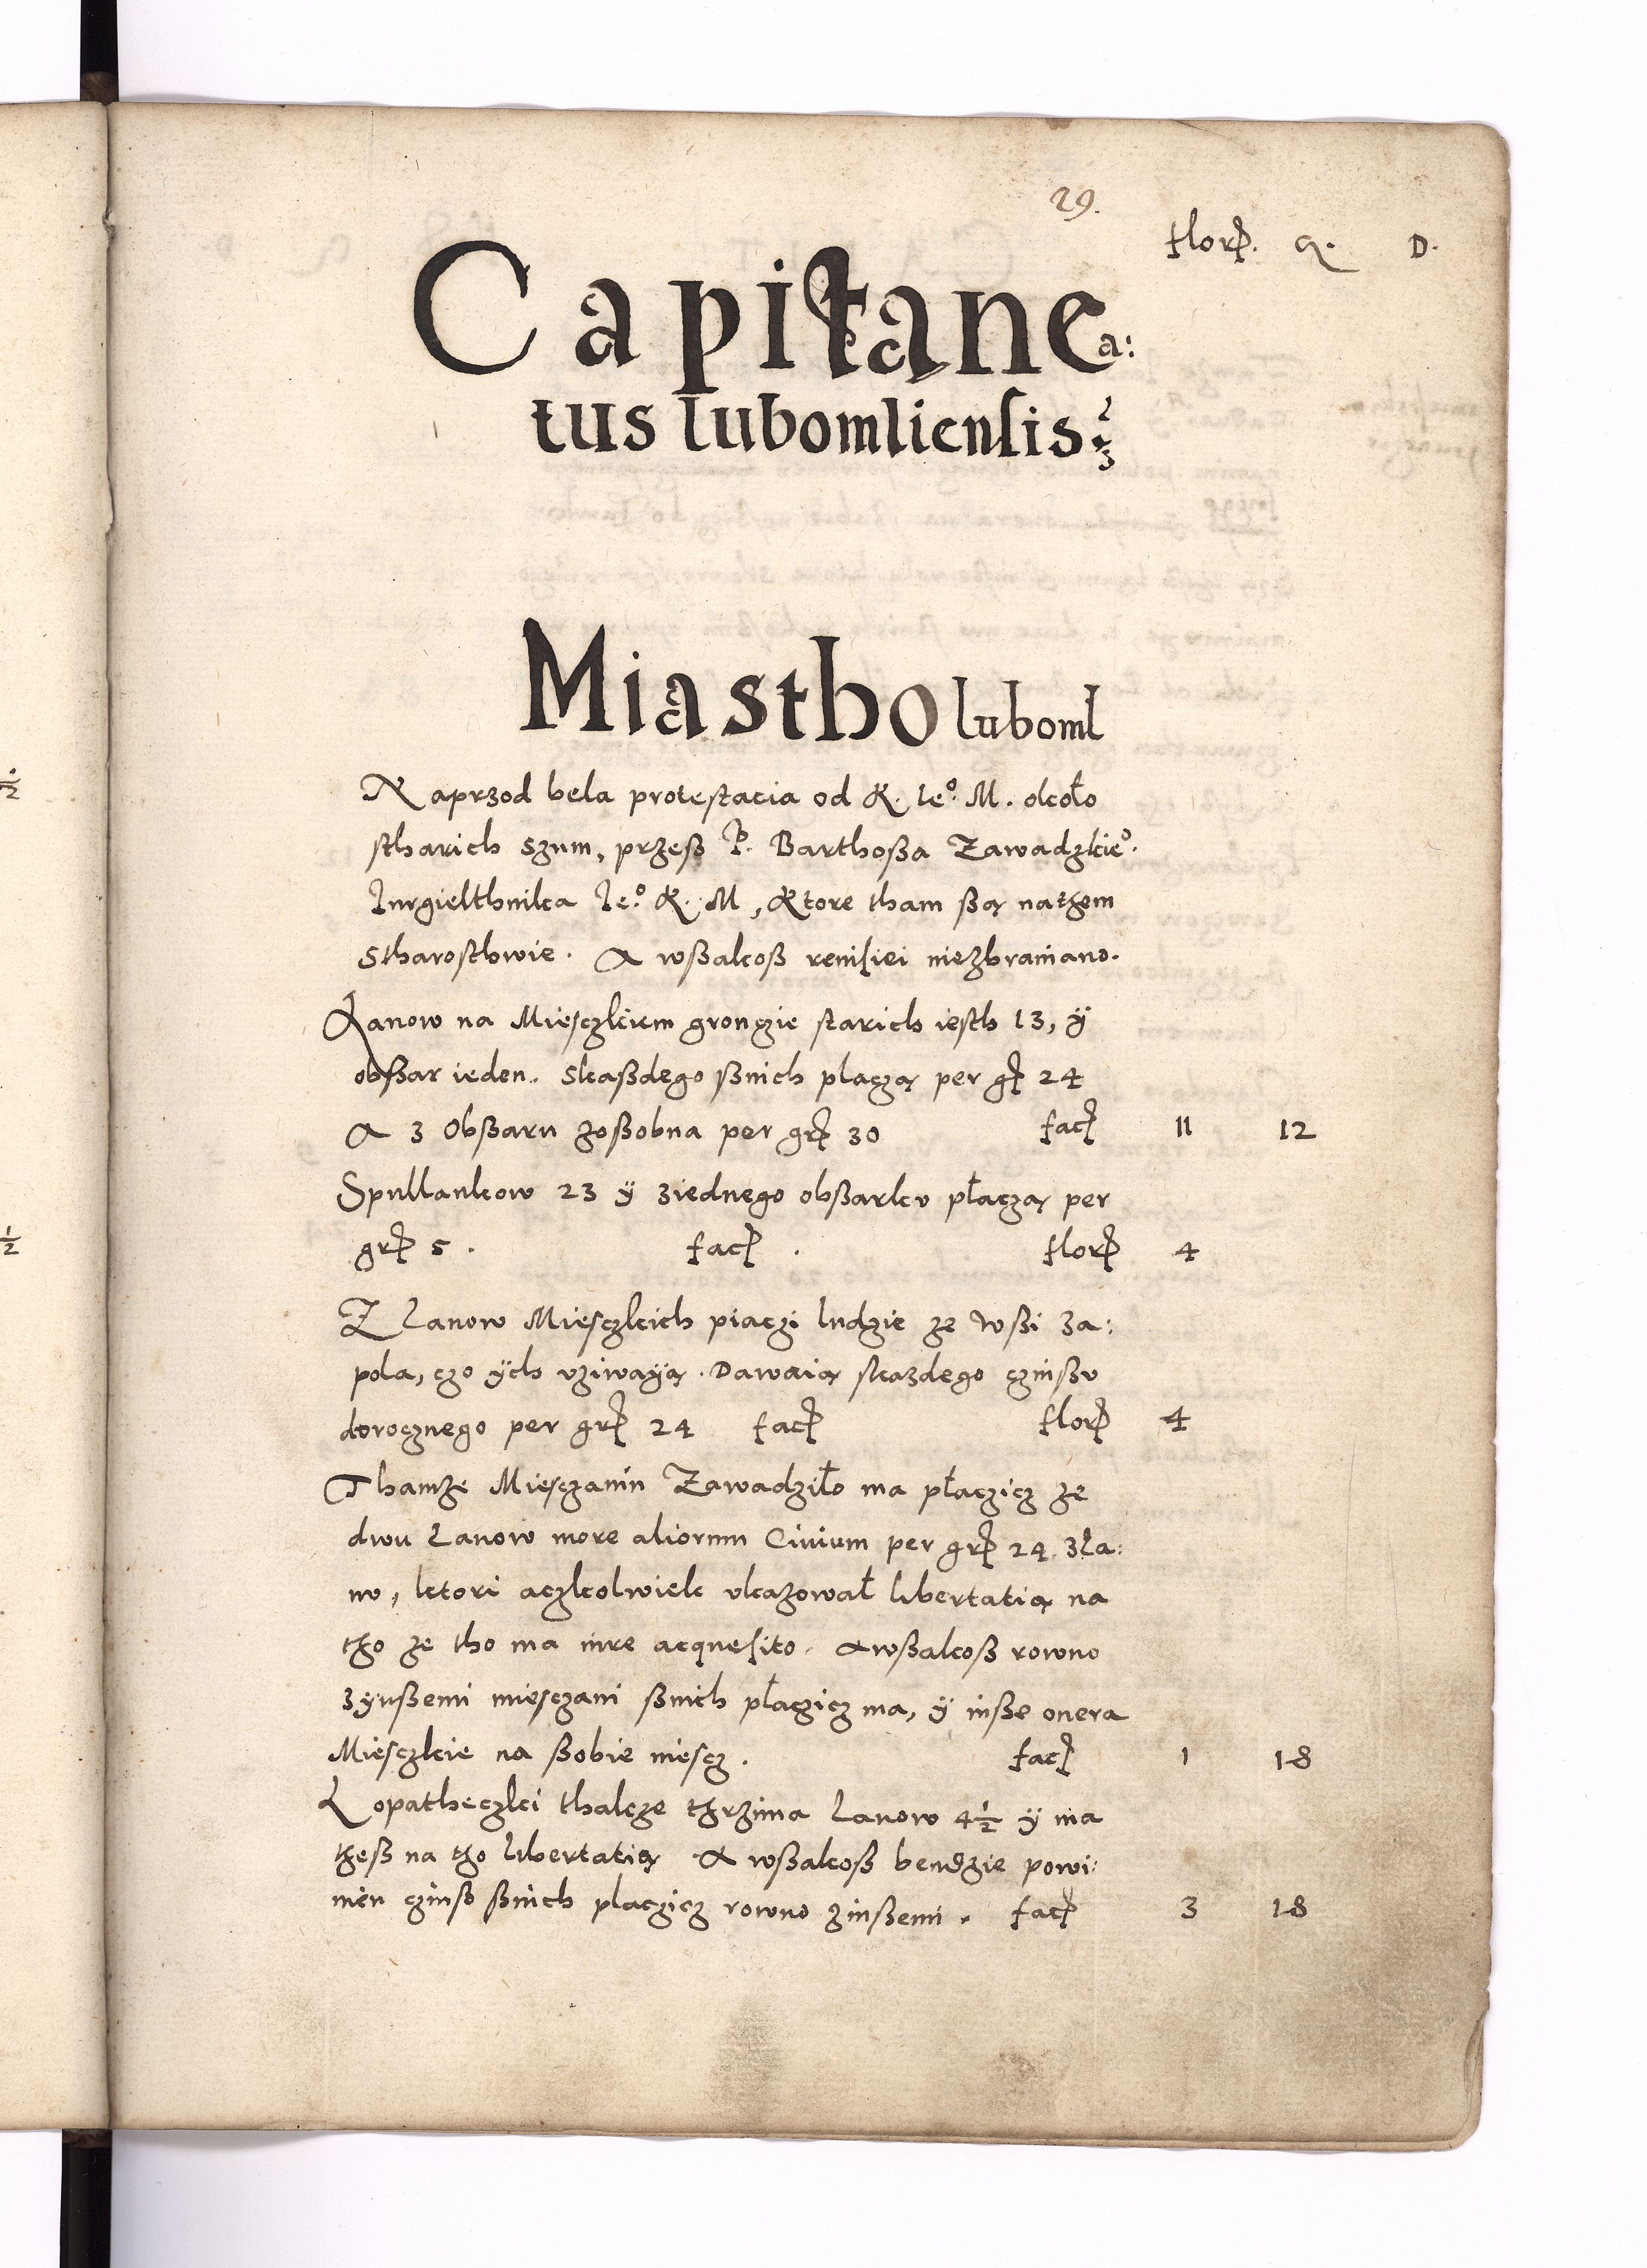 29.
florṗ. Q. D.
Capitanea:
tus lubomliensis
Miastho luboml
Naprzod bela protestacia od K. Ieº. M. około
stharich szum, przesß P. Barthoßa Zawadzkieº.
Iurgielthnika Ieº. K. M, Ktore tham ßą nathem
Stharosthwie. A wßakoß remisiei niezbraniano.
Łanow na Miesczkiem gronczie starich iesth 13, ÿ
obßar ieden. skaßdego ßnich placzą per gr 24
A 3 Obßaru zoßobna per gr 30 fac 11 12
Spullankow 23 ÿ ziednego obßarku płaczą per
gr 5. fac. flor 4
Z Lanow Miesczkich piaczi ludzie ze wßi Za:
pola, czo ÿch uziwaÿą. Dawaią skazdego czinßu
dorocznego per gr 24 fac flor 4
Thamze Miesczanin Zawadziło ma płaczicz ze
dwu Lanow more aliorum Civium per gr 24 zła:
nu, ktori aczkolwiek ukazował libertatią na
tho ze tho ma iure acquesito. A wßakoß rowno
zÿnßemi miesczani ßnich płaczicz ma, ÿ inße onera
Miesczkie na ßobie niescz. fac 1 18
Łopatheczki thakze thrzima Lanow 4½ ÿ ma
theß na tho libertatią. A wßakoß bendzie powi:
nien czinß ßnich placzicz rowno zinßemi. fac 3 18